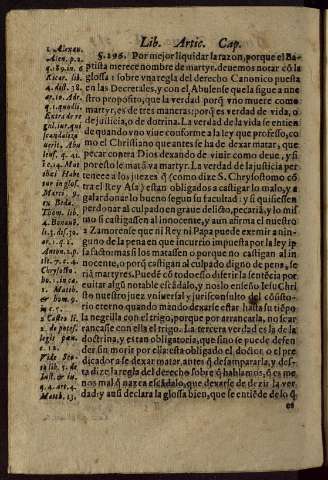 Lib. Artic. Cap.
§. 296. Por mejor liquidar la razon, porque el Ba-
ptista merece nombre de martyr, deuemos notar cō la
glossa 1 sobre vna regla del derecho Canonico puesta
en las Decretales, y con el Abulense que la sigue a nue
stro proposito, que la verdad porq̄ vno muere como
martyr, es de tres maneras: porq̄ es verdad de vida, o
de justicia, o de dotrina. La verdad de la vida se entiēde
de quando vno viue conforme a la ley que professo, co
mo el Christiano que antes se ha de dexar matar, que
pecar contra Dios dexando de viuir como deue, y si
por esto le matā va martyr. La verdad de la justicia per
tenece a los juezes q̄ (como dize S. Chrysostomo cō
tra el Rey Asa) estan obligados a castigar lo malo, y a
galardonar lo bueno segun su facultad: y si quisiessen
perdonar al culpado en graue delicto, pecariā, y lo mis
mo si castigassen al innocente, y aun afirma el nuestro
Zamorense que ni Rey ni Papa puede exemir a nin-
guno de la pena en que incurrio impuesta por la ley ip
so facto: mas si los matassen o porque no castigan al in
nocente, o porq̄ castigan al culpado digno de pena, se
riā martyres. Puedē cō todo esso diferir la sentēcia por
euitar algū notable escādalo, y nos lo enseño Iesu Chri
sto nuestro juez vniuersal y jurisconsulto del cōsisto-
rio eterno quando mandò dexarse estar hasta su tiēpo
la negrilla con el trigo, porque por arrancarla, no se ar
rancasse con ella el trigo. La tercera verdad es la de la
doctrina, y estan obligatoria, que sino se puede defen
der sin morir por ella: esta obligado el doctor o el pre
dicador a se dexar matar, antes q̄ desampararla, y des-
ta dize la regla del derecho sobre q̄ hablamos, q̄ es me
nos mal q̄ nazca escādalo, que dexarse de dezir la ver-
dad: y aun declara la glossa bien, que se entiēde de lo q̄
es
1. Alexan.
Alen. p. 2.
q. 189. in. 6
Ricar. lib.
4. dist. 38.
ar. 10. Adr.
q. 1. quodli.
Extra de re
gul. iur. qui
scandaliza
uerit. Abu
lens. q. 41.
in c. 14. Mat
thæi. Habe
tur in glos.
Marci. 9.
ex Beda.
Thom. lib.
4. Bonauē.
li. 3. dis. 30.
ar. 1. q. 1.
Anton. 2. p.
tit. 7. c. 4.
Chrysosto
ho. 1. in ca.
1. Matth.
& hom. 9.
in c. 5.
2 Castro li.
2. de potes.
legis pœn.
c. 12.
Vide Sto
to lib. 5. de
Iust. & iu.
q. 4. art. 4.
Matth. 13.